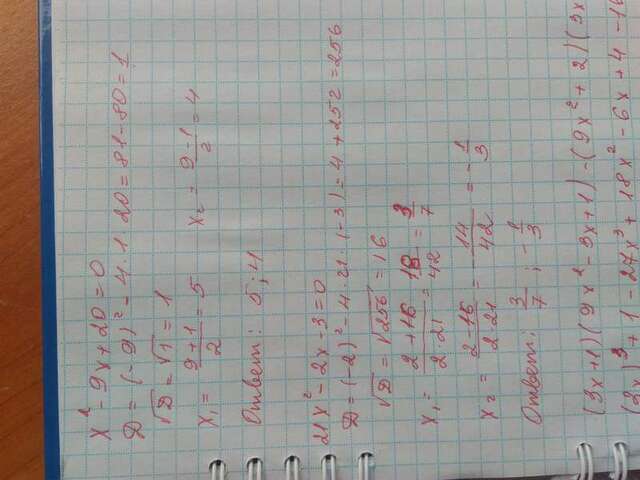 x² - 9x + 20 = 0
D = (-9)² - 4 · 1 · 20 = 81 - 80 = 1
√D = √1 = 1
x₁ = (9+1)/2 = 5 x₂ = (9-1)/2 = 4
Ответ: 5; 4
21x² - 2x - 3 = 0
D = (-2)² - 4 · 21 · (-3) = 4 + 252 = 256
√D = √256 = 16
x₁ = (2+16)/(2·21) = 18/42 = 3/7
x₂ = (2-16)/(2·21) = -14/42 = -1/3
Ответ: 3/7; -1/3
(3x+1)(9x² - 3x + 1) - (9x² + 2)(3x
)³ + 1 - 27x³ + 18x² - 6x + 4 - 1